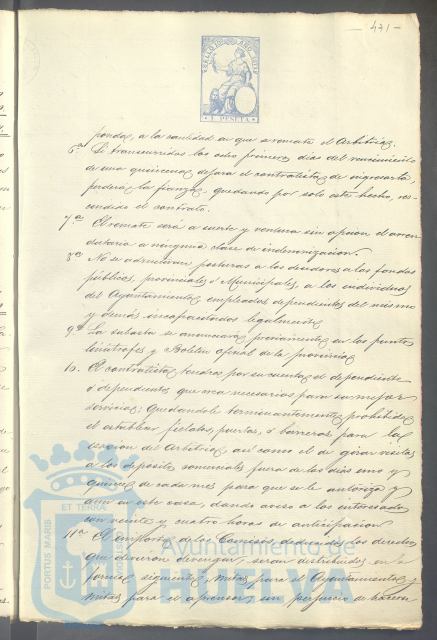 - 471 -
SELLO 10º AÑO 1891
1 PESETA
ponda, a la cantidad en que se remate el Arbitrio.
6ª Si transcurridos los ocho primeros dias del vencimiento
de una quincena dejara el contratista de ingresarla,
perderá la fianza, quedando por solo este hecho, res-
cindido el contrato.
7ª El remate sera a suerte y ventura sin opcion el arren-
datario a ninguna clase de indemnizacion.
8ª No se admitiran posturas a los deudores a los fondos
públicos, provinciales ó Municipales, a los individuos
del Ayuntamiento, empleados dependientes del mismo
y demás incapacitados legalmente
9ª La subasta se anunciará previamente en los puntos
limitrofes y Boletin oficial de la provincia
10. El contratista, tendra por su cuenta el dependiente
ó dependientes que crea necesarios para su mejor
servicio; quedandole terminantemente prohibido
el establecer fielatos, puertas, ó barreras para la
del Arbitrio, asi como el de girar visitas
a los depositos comerciales fuera de los dias uno y
quince de cada mes para que se le autoriza y
aun en este caso, dando aviso a los interesados
con veinte y cuatro horas de anticipacion
11ª El importe de los Comisos, deducidos los derechos
que debieron devengar, seran distribuidos en la
forma siguiente, mitad para el Ayuntamiento y
mitad para el aprensor, sin perjuicio de
PORTUS MARIS ET TERRÆ CUSTODIA
Ayuntamiento de